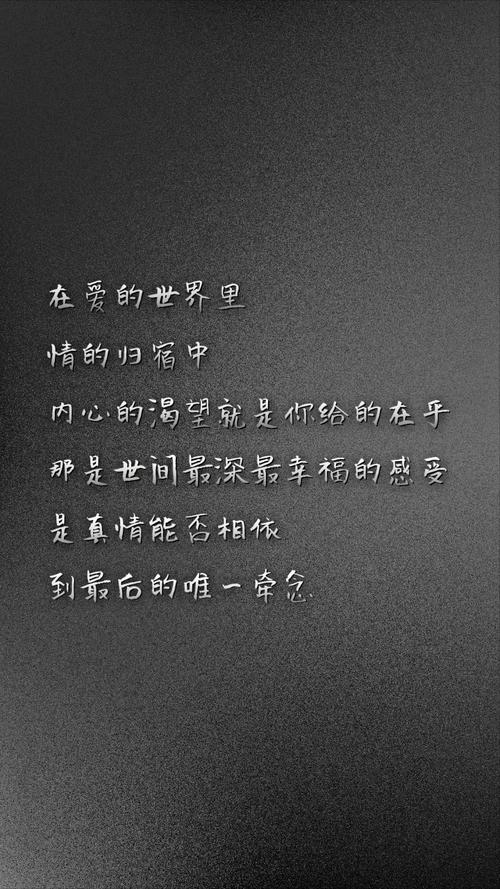 在爱的世界里
情的归宿中
内心的渴望就是你给的在乎
那是世间最深最幸福的感受
是真情能否相依
到最后的唯一牵念